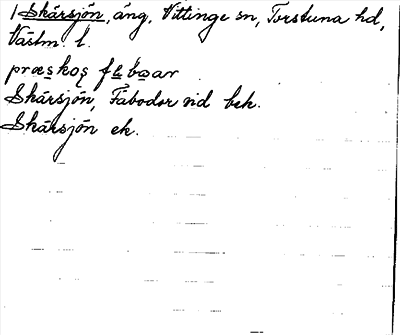 Skärsjön, äng, Vittinge sn, Torstuna hd,
Västm. l.
præskoȩ fȩbo̱ar
Skärsjön, Fäbodar vid bek.
Skärsjön ek.